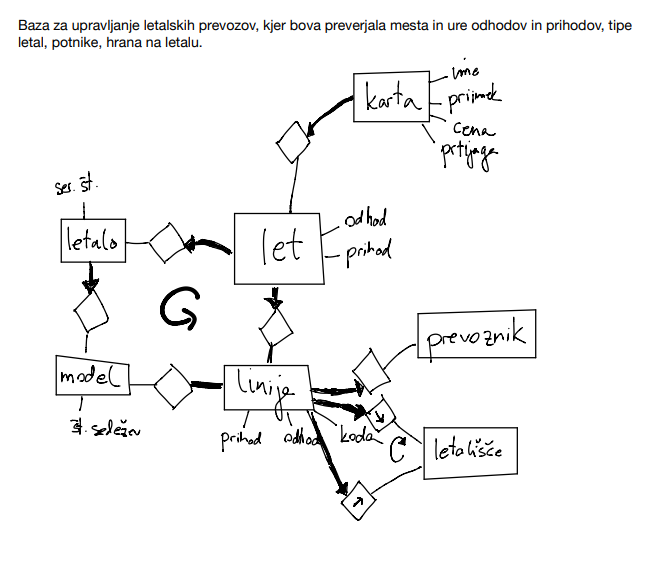 Baza za upravljanje letalskih prevozov, kjer bova preverjala mesta in ure odhodov in prihodov, tipe
letal, potnike, hrana na letalu.
ime
karta
priimek
cena
prtljaga
ser. št.
letalo
let
odhod
prihod
prevoznik
model
linije
št. sedežev
prihod
odhod
koda
letališče